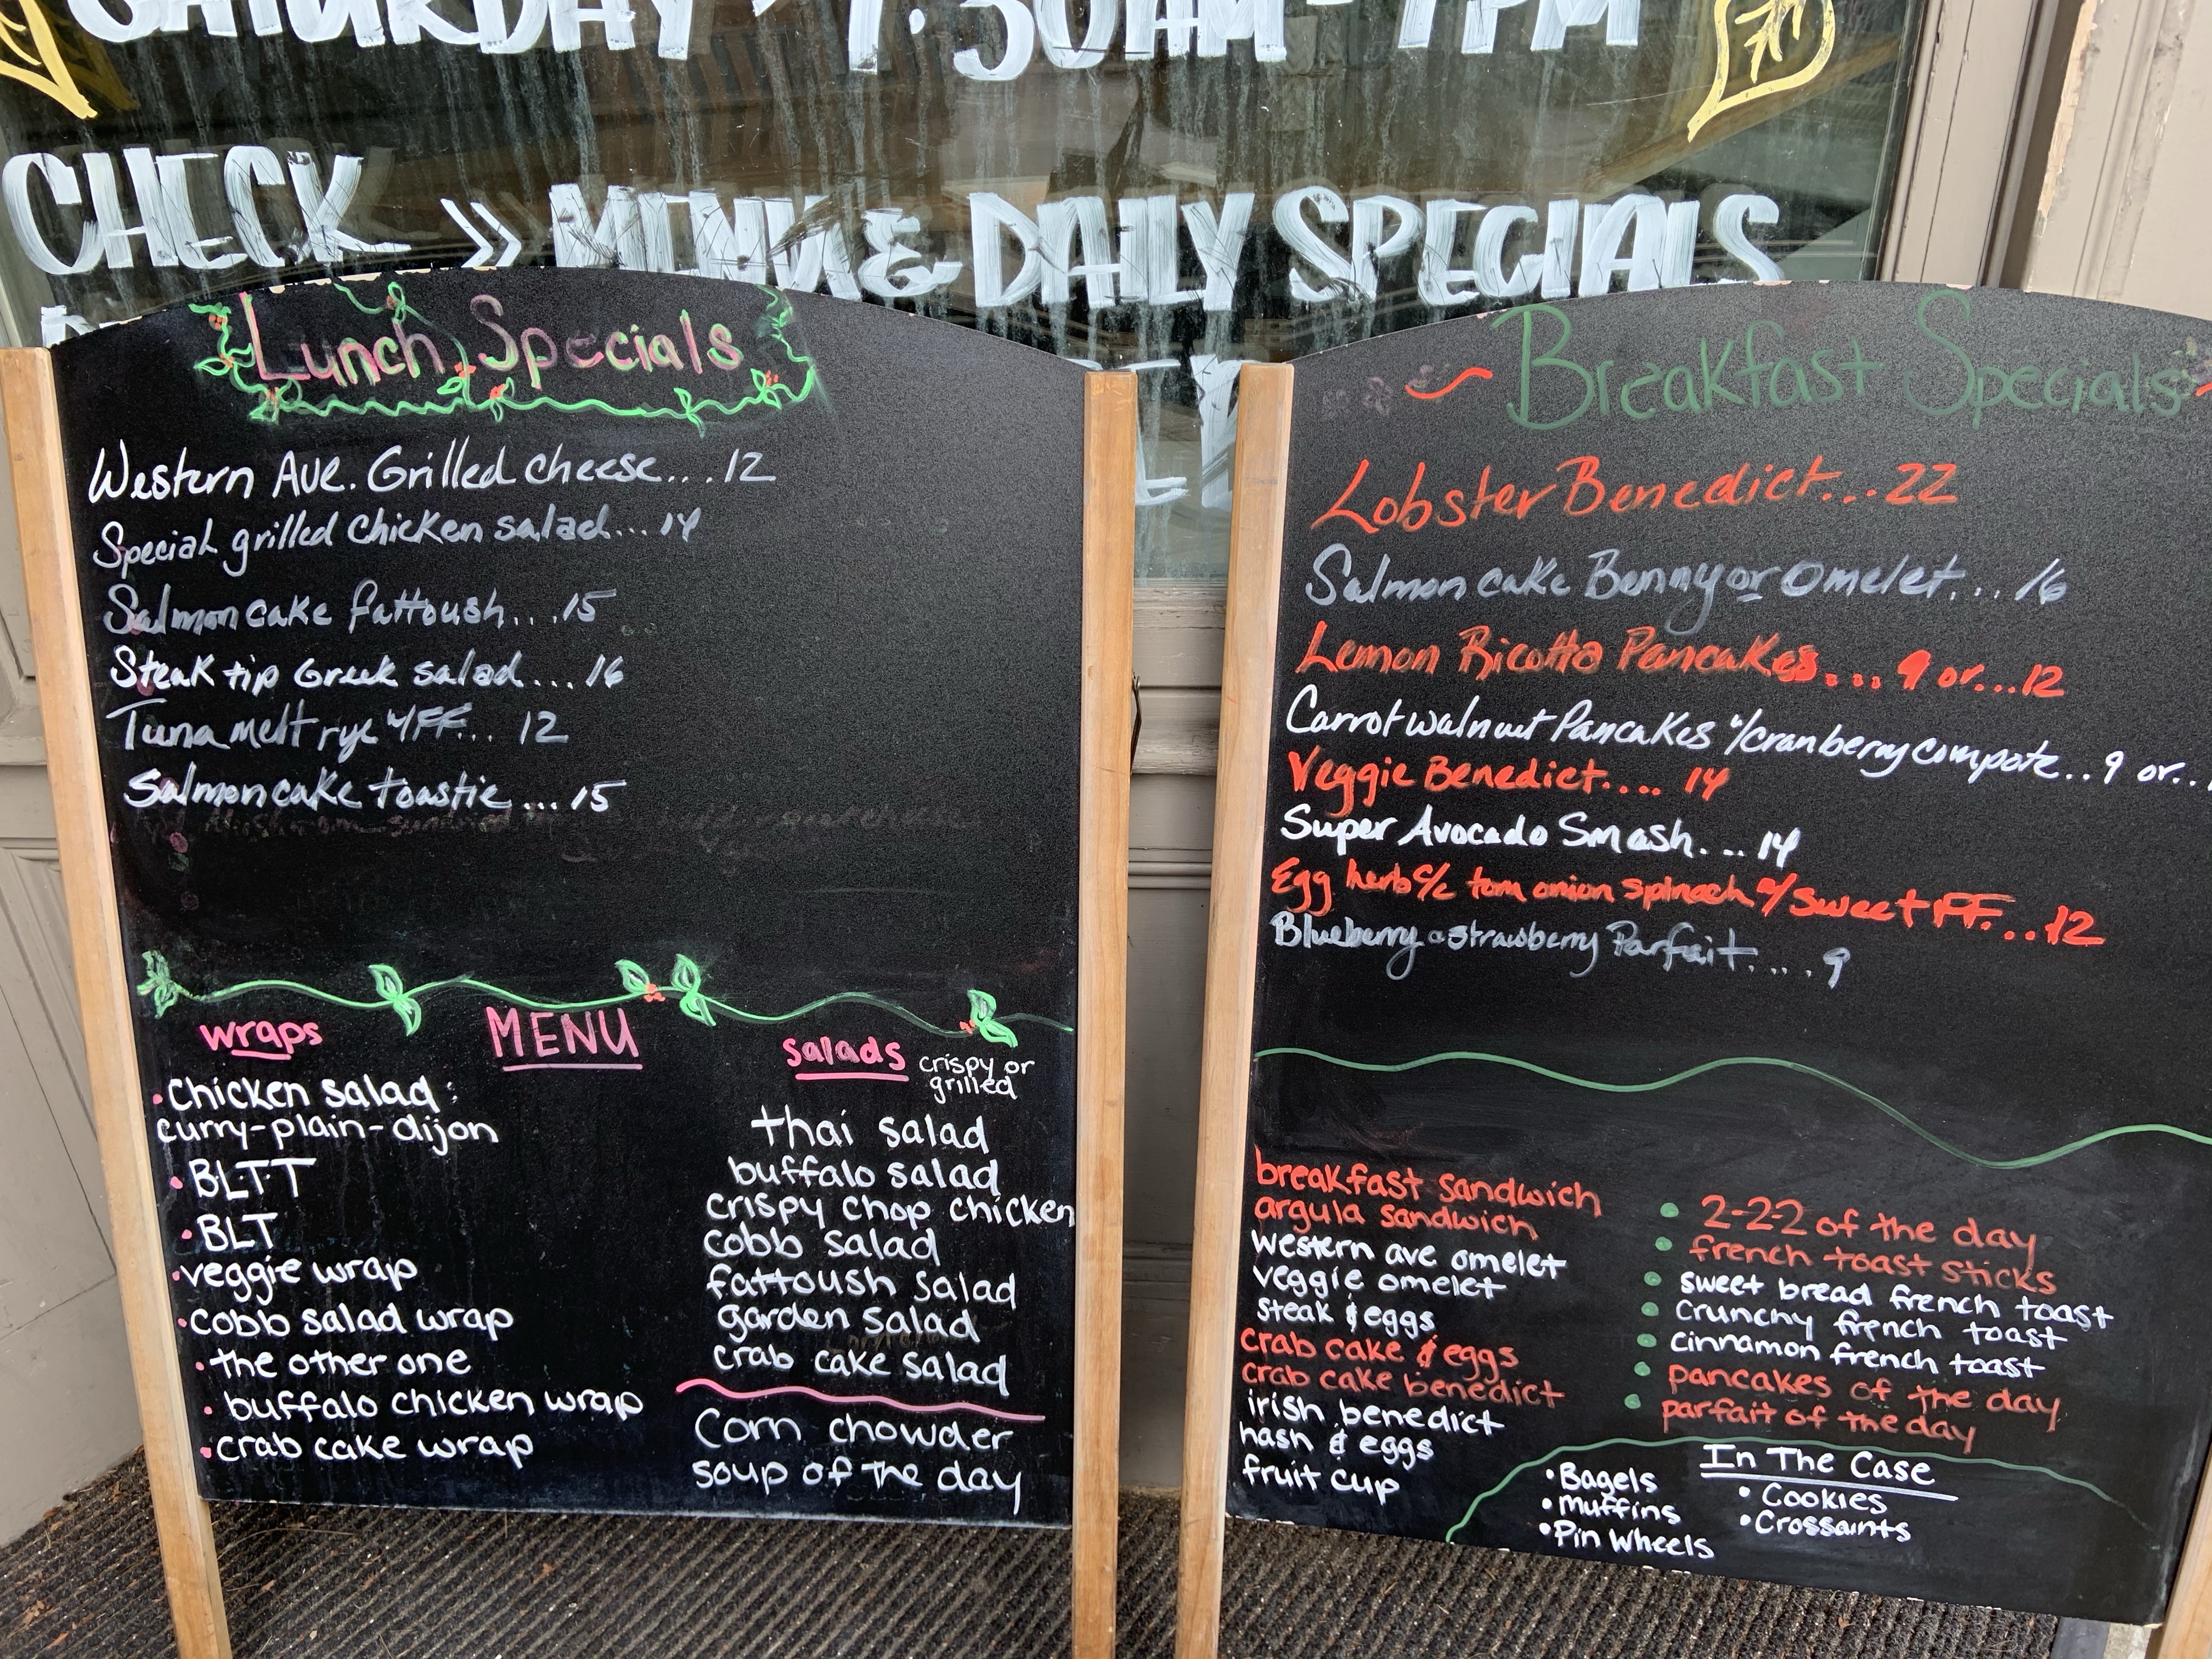 SATURDAY
7:30AM - 1PM
CHECK >> MENU & DAILY SPECIALS
Lunch Specials
Western Ave. Grilled cheese....12
Special grilled chicken salad...14
Salmon cake fattoush....15
Steak tip Greek salad.... 16
Tuna melt rye w/FF... 12
Salmon cake toastie ... 15
MENU
wraps
• Chicken salad:
curry-plain-dijon
• BLTT
• BLT
• veggie wrap
• cobb salad wrap
• the other one
• buffalo chicken wrap
• crab cake wrap
salads crispy or
grilled
thai salad
buffalo salad
crispy chop chicken
cobb salad
fattoush salad
garden salad
crab cake salad
Corn chowder
soup of the day
Breakfast Specials
Lobster Benedict...22
Salmon cake Benny or Omelet... 16
Lemon Ricotta Pancakes.... 9 or...12
Carrot walnut Pancakes w/cranberry compote..9 or..
Veggie Benedict.... 14
Super Avocado Smash.... 14
Egg herb c/c tom onion spinach w/sweet FF...12
Blueberry & strawberry Parfait.... 9
breakfast sandwich
argula sandwich
western ave omelet
veggie omelet
steak & eggs
crab cake & eggs
crab cake benedict
irish benedict
hash & eggs
fruit cup
• 2-2-2 of the day
• french toast sticks
• sweet bread french toast
• crunchy french toast
• cinnamon french toast
• pancakes of the day
• parfait of the day
In The Case
• Bagels
• Muffins
• Pin Wheels
• Cookies
• Crossaints